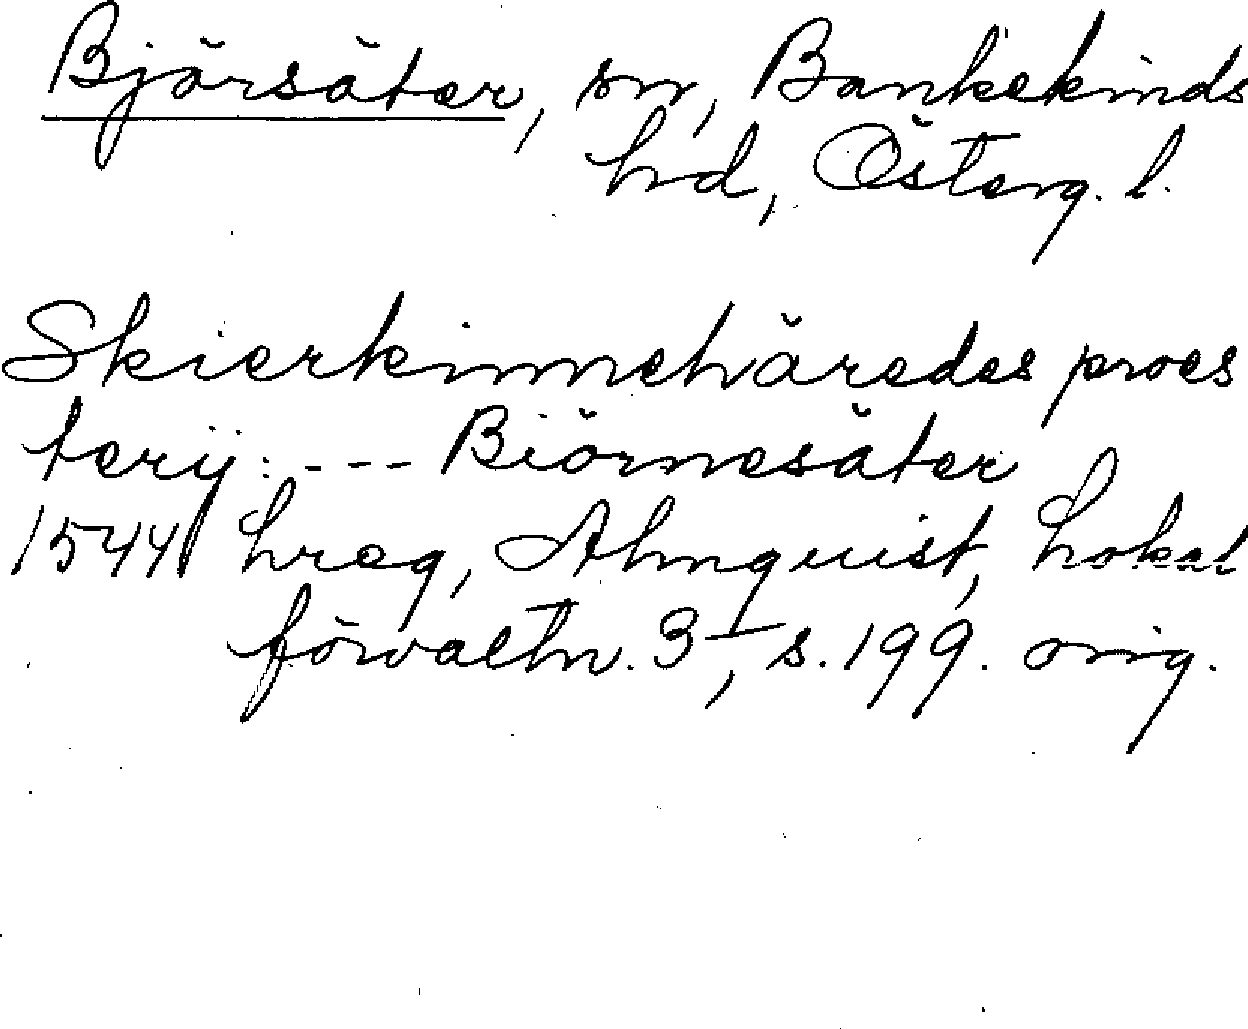 Björsäter, sn, Bankekinds
hd, Österg. l.
Skierkinnehäredes proes
terij: --- Biörnesäter
1544 hreg, Almquist, Lokal
förvaltn. 3 I, s. 199. orig.